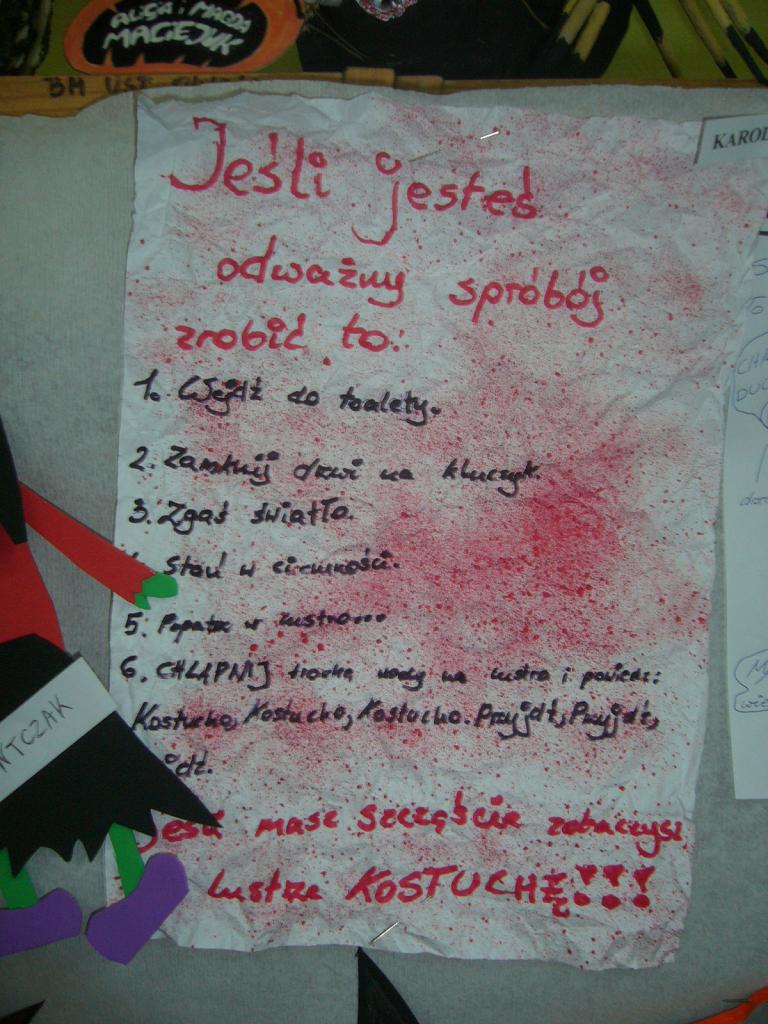 ALICJA i MAGDA
MACEJUK
KAROL
Jeśli jesteś
odważny spróbój
zrobić to:
1. Wejdź do toalety.
2. Zamknij drzwi na kluczyk.
3. Zgaś światło.
Stań w ciemności.
5. Popatrz w lustro...
6. CHLAPNIJ trochę wody na lustro i powiedz:
Kostucho, Kostucho, Kostucho. Przyjdź, Przyjdź,
jdź.
Jeśli masz szczęście zobaczysz
lustrze KOSTUCHĘ!!!
NTCZAK